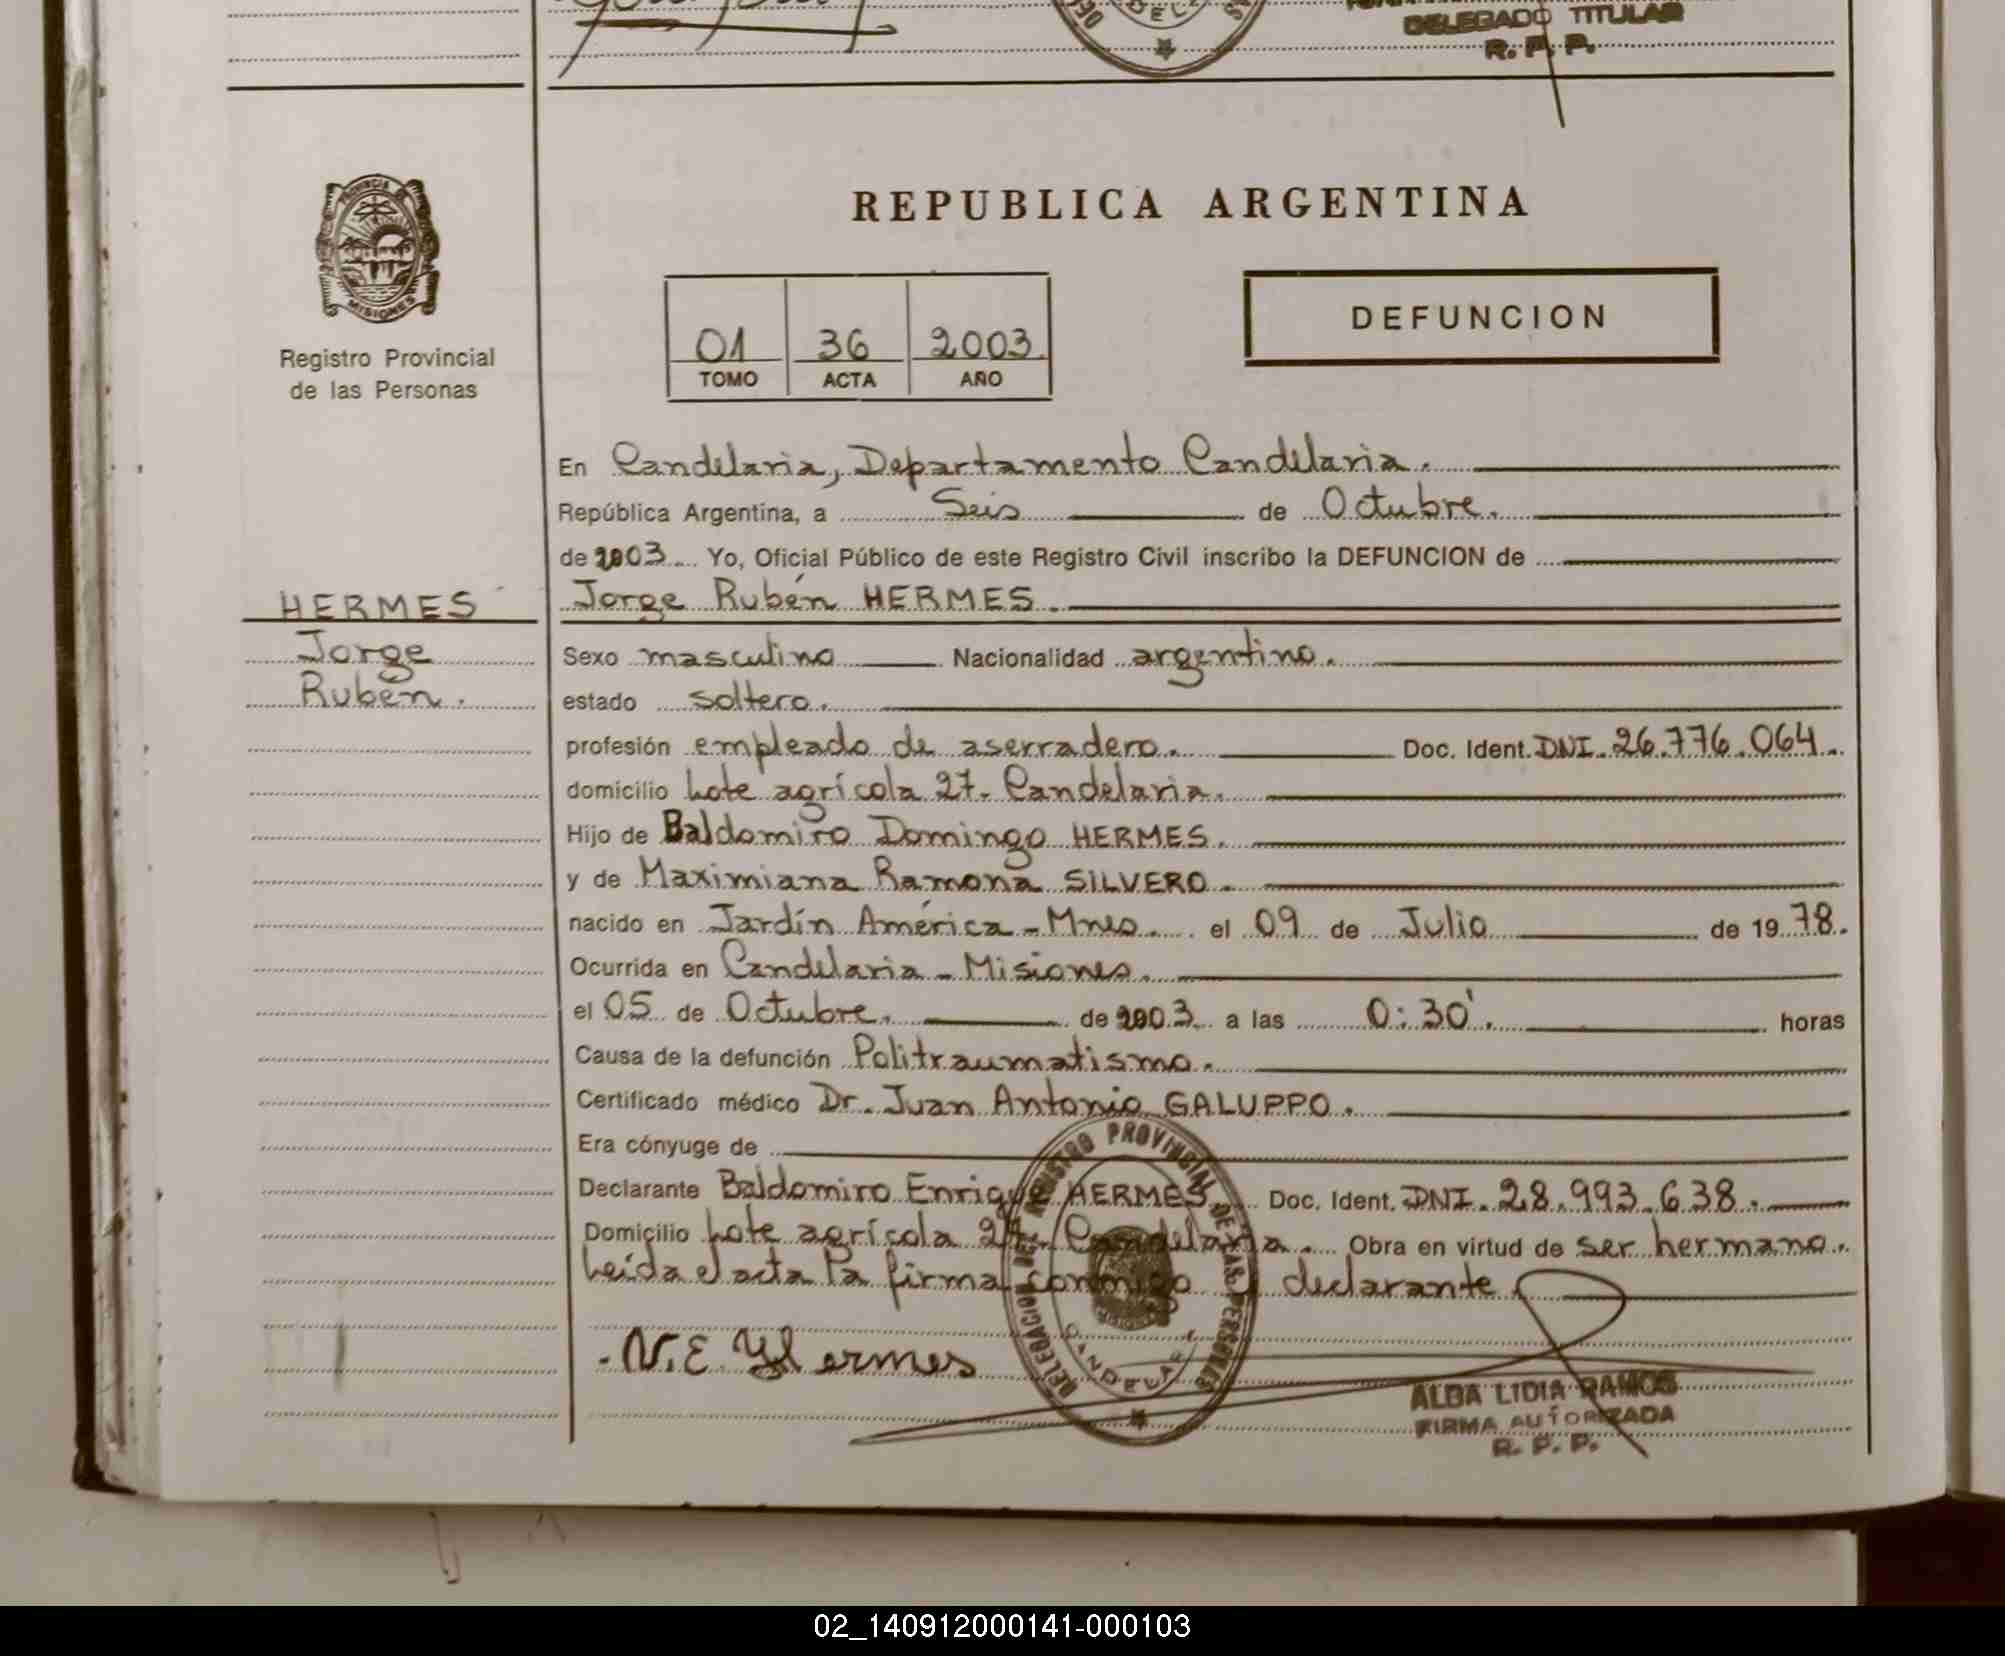 DELEGADO TITULAR
R. P. P.
PROVINCIA DE
MISIONES
Registro Provincial
de las Personas
REPUBLICA ARGENTINA
DEFUNCION
01 36 2003
TOMO ACTA AÑO
En Candelaria, Departamento Candelaria.
República Argentina, a Seis de Octubre.
de 2003 Yo, Oficial Público de este Registro Civil inscribo la DEFUNCION de
HERMES
Jorge
Rubén.
Jorge Rubén HERMES.
Sexo masculino Nacionalidad argentino.
estado soltero.
profesión empleado de aserradero. Doc. Ident. DNI. 26.776.064.
domicilio Lote agrícola 27. Candelaria.
Hijo de Baldomiro Domingo HERMES.
y de Maximiana Ramona SILVERO.
nacido en Jardín América - Mnes. el 09 de Julio de 1978.
Ocurrida en Candelaria - Misiones.
el 05 de Octubre. de 2003 a las 0:30'. horas
Causa de la defunción Politraumatismo.
Certificado médico Dr. Juan Antonio GALUPPO.
Era cónyuge de
Declarante Baldomiro Enrique HERMES. Doc. Ident. DNI. 28.993.638.
Domicilio Lote agrícola 27. Candelaria. Obra en virtud de ser hermano.
Leída el acta la firma conmigo el declarante.
DELEGACION DEL REGISTRO PROVINCIAL DE LAS PERSONAS
CANDELARIA
Hermes
ALBA LIDIA RAMOS
FIRMA AUTORIZADA
R. P. P.
02_140912000141-000103